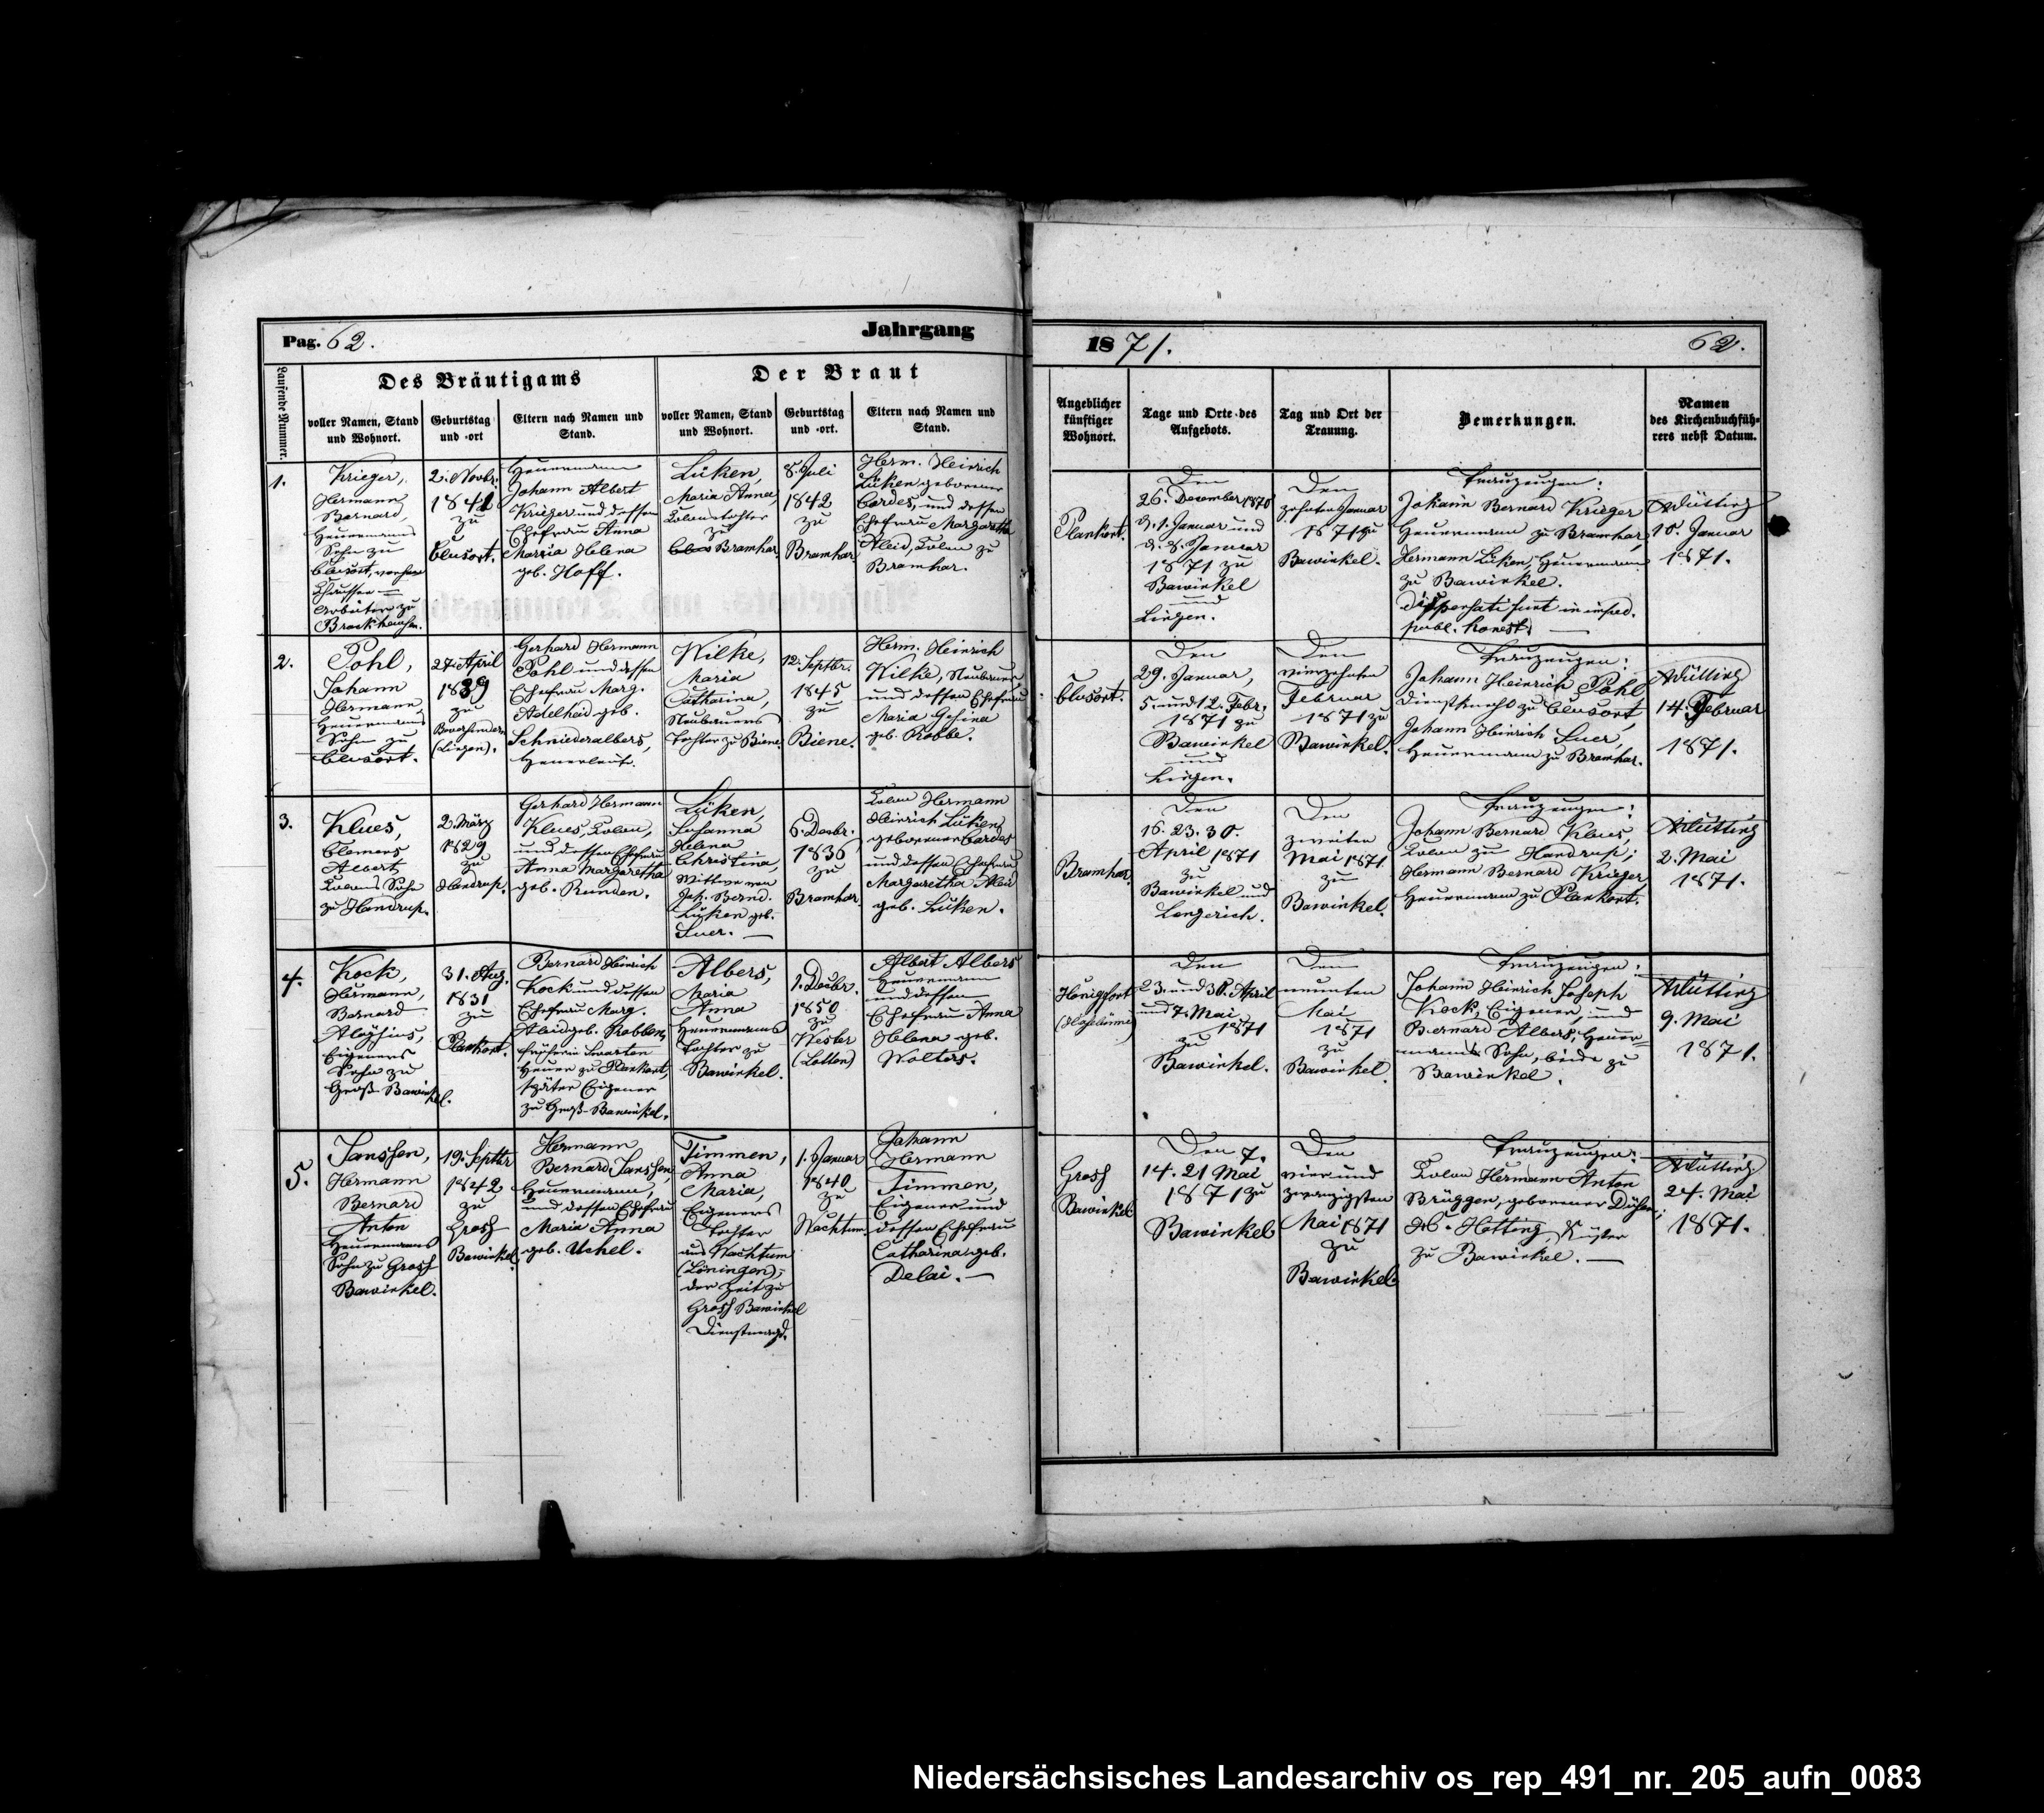 Pag. 62.
Jahrgang
1871.
62.
Laufende Nummer.
Des Bräutigams
Der Braut
voller Namen, Stand
und Wohnort.
Geburtstag
und -ort
Eltern nach Namen und
Stand.
voller Namen, Stand
und Wohnort.
Geburtstag
und -ort.
Eltern nach Namen und
Stand.
Angeblicher
künftiger
Wohnort.
Tage und Orte des
Aufgebots.
Tag und Ort der
Trauung.
Bemerkungen.
Namen
des Kirchenbuchfüh-
rers nebst Datum.
1.
Krieger,
Hermann
Bernard,
Heuermanns
Sohn zu
Clusort, vorher
Chaussee-
Arbeiter zu
Brockhausen.
2. Novbr.
1841
zu
Clusort.
Heuermann
Johann Albert
Krieger und dessen
Ehefrau Anna
Maria Helena
geb. Hoff.
Lüken,
Maria Anna,
Colonstochter
zu
Bramhar.
8. Juli
1842
zu
Bramhar.
Herm. Heinrich
Lüken geborener
Cordes, und dessen
Ehefrau Margaretha
Aleid, Colon zu
Bramhar.
Plankort.
Den
26. Dezember 1870
d. 1. Januar und
d. 8. Januar
1871 zu
Bawinkel
und
Lingen.
Den
zehnten Januar
1871 zu
Bawinkel.
Trauzeugen:
Johann Bernard Krieger
Heuermann zu Bramhar,
Hermann Lüken, Heuermann
zu Bawinkel.
dispensati sunt in imped.
publ. honest.
Wütting
10. Januar
1871.
2.
Pohl,
Johann
Hermann,
Heuermanns
Sohn zu
Clusort.
27. April
1839
zu
(Lingen).
Gerhard Hermann
Pohl und dessen
Ehefrau Marg.
Adelheid geb.
Schniederalbers,
Heuerleute.
Wilke,
Maria
Catharina,
Neubauers
Tochter zu Biene.
12. Septbr.
1845
zu
Biene.
Herm. Heinrich
Wilke, Neubauer
und dessen Ehefrau
Maria Gesina
geb. Robbe.
Clusort.
Den
29. Januar,
5. und 12. Febr.
1871 zu
Bawinkel
und
Lingen.
Den
vierzehnten
Februar
1871 zu
Bawinkel.
Trauzeugen:
Johann Heinrich Pohl
Dienstknecht zu Clusort,
Johann Heinrich Suer,
Heuermann zu Bramhar.
Wütting
14. Februar
1871.
3.
Klues,
Clemens
Albert
Colons Sohn
zu Handrup.
2. März
1829
zu
Handrup.
Gerhard Hermann
Klues, Colon,
und dessen Ehefrau
Anna Margaretha
geb. Runden.
Lüken,
Susanna
Helena
Christina,
Wittwe von
Joh. Bernd.
Lüken geb.
Suer.
6. Decbr.
1836
zu
Bramhar.
Colon Hermann
Heinrich Lüken,
geborener Cordes
und dessen Ehefrau
Margaretha Aleid
geb. Lüken.
Bramhar.
Den
16. 23. 30.
April 1871
zu
Bawinkel und
Lengerich.
Den
zweiten
Mai 1871
zu
Bawinkel.
Trauzeugen:
Johann Bernard Klues,
Colon zu Handrup;
Hermann Bernard Krieger
Heuermann zu Plankort.
Wütting
2. Mai
1871.
4.
Kock,
Hermann,
Bernard
Aloysius,
Eigeners
Sohn zu
Groß-Bawinkel.
31. Aug.
1831
zu
Plankort.
Bernard Heinrich
Kock und dessen
Ehefrau Marg.
Aleid geb. Robben,
Heuer zu Plankort,
später Eigener
zu Groß-Bawinkel.
Albers,
Maria
Anna
Heuermanns
Tochter zu
Bawinkel.
1. Decbr.
1850
zu
Wester
(Lotten)
Albert Albers
Heuermann
und dessen
Ehefrau Anna
Helena geb.
Wolters.
Hönigsort
(Haselünne)
23. und 30. April
und 7. Mai
1871
zu
Bawinkel.
Den
neunten
Mai
1871
zu
Bawinkel.
Trauzeugen:
Johann Heinrich Joseph
Kock, Eigener, und
Bernard Albers, Heuer-
manns Sohn, beide zu
Bawinkel.
Wütting
9. Mai
1871.
5.
Janssen,
Hermann
Bernard
Anton
Heuermanns
Sohn zu Gross
Bawinkel.
19. Septbr
1842
zu
Gross
Bawinkel.
Hermann
Bernard Janssen,
Heuermann,
und dessen Ehefrau
Maria Anna
geb. Uchel.
Timmen,
Anna
Maria,
Eigeners
Tochter
aus Wachtum
(Löningen),
der Zeit zu
Gross Bawinkel
Dienstmagd.
1. Januar
1840
zu
Wachtum.
Johann
Hermann
Timmen,
Eigener und
dessen Ehefrau
Catharina geb.
Delai.
Gross
Bawinkel
Den 7.
14. 21 Mai
1871 zu
Bawinkel
Den
vier und
zwanzigsten
Mai 1871
zu
Bawinkel.
Trauzeugen:
Colon Hermann Anton
Brüggen, geborener
Hotting, Küster
zu Bawinkel.
Wütting.
24. Mai
1871.
Niedersächsisches Landesarchiv os_rep_491_nr._205_aufn_0083